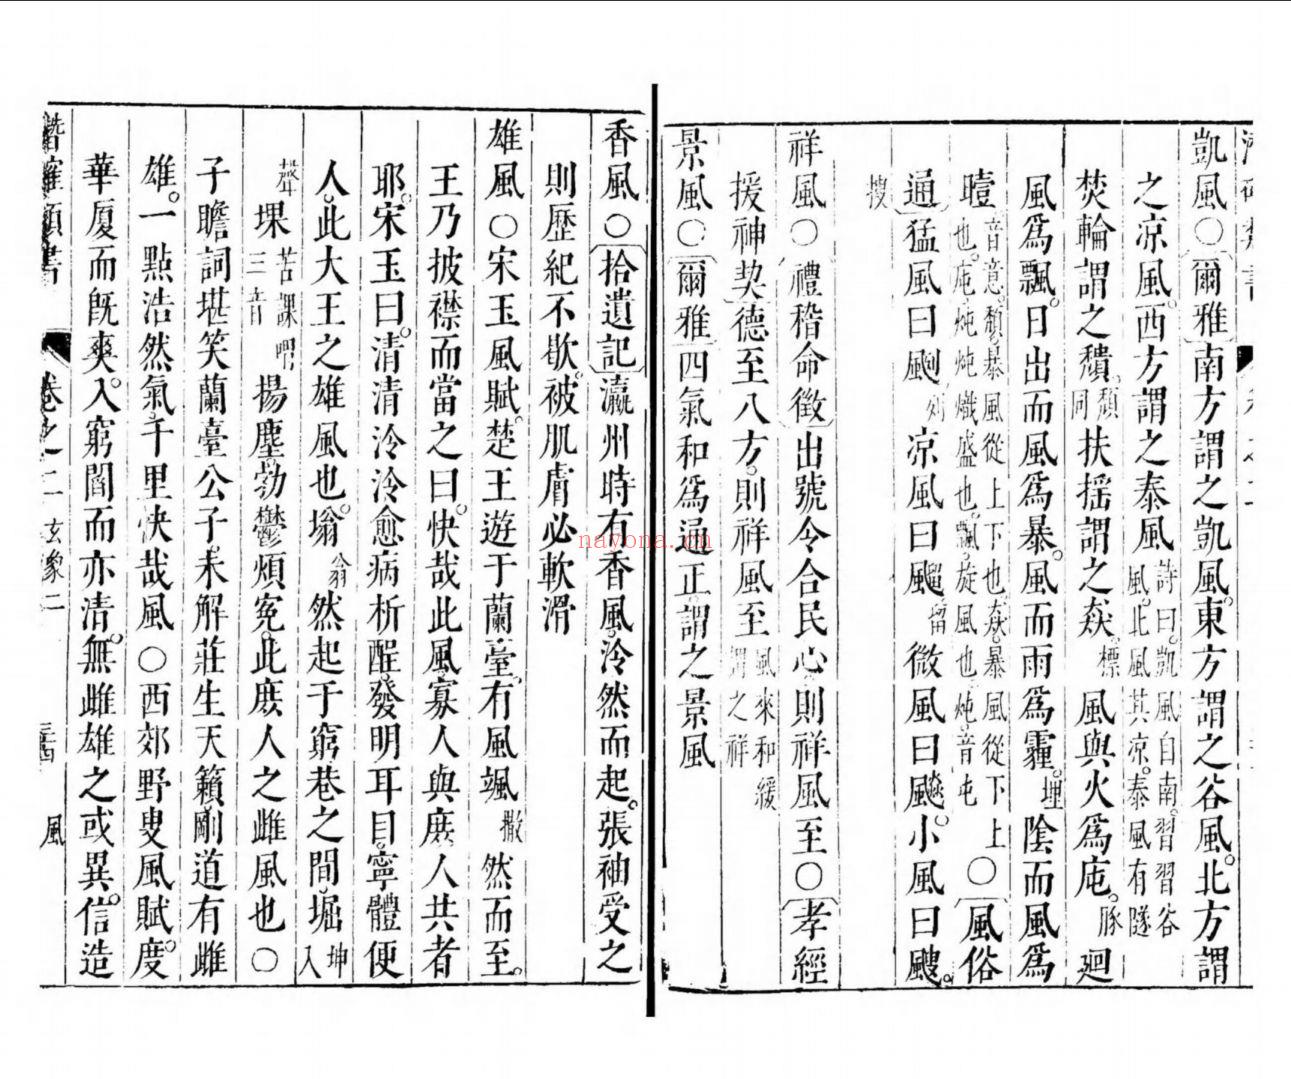 凱風○爾雅南方謂之凱風東方謂之谷風北方謂
之凉風西方謂之泰風詩曰凱風自南習習谷風北風其凉泰風有隧
焚輪謂之穨頽同扶揺謂之猋標風與火為庉豚廻
風為飄日出而風為暴風而雨為霾埋陰而風為
曀音意頽暴風從上下也猋暴風從下上也庉炖炖熾盛也飄旋風也炖音屯○風俗
通猛風曰颲列凉風曰飀留微風曰飈小風曰颼
搜
祥風○禮稽命徴出號令合民心則祥風至○孝經
援神契德至八方則祥風至風來和緩謂之祥
景風○爾雅四氣和為通正謂之景風
香風○拾遺記瀛州時有香風泠然而起張袖受之
則歷紀不歇被肌膚必軟滑
雄風○宋玉風賦楚王遊于蘭臺有風颯撒然而至
王乃披襟而當之曰快哉此風寡人與庶人共者
耶宋玉曰清清泠泠愈病析酲發明耳目寧體便
人此大王之雄風也塕翁然起于窮巷之間堀坤入
聲堁苦課揚塵勃鬱煩寃此庶人之雌風也○
子瞻詞堪笑蘭臺公子未解莊生天籟剛道有雌
雄一點浩然氣千里快哉風○西郊野叟風賦度
華厦而旣爽入窮閻而亦清無雌雄之或異信造
潛確類書 卷之二 玄象二 風
nayona.cn